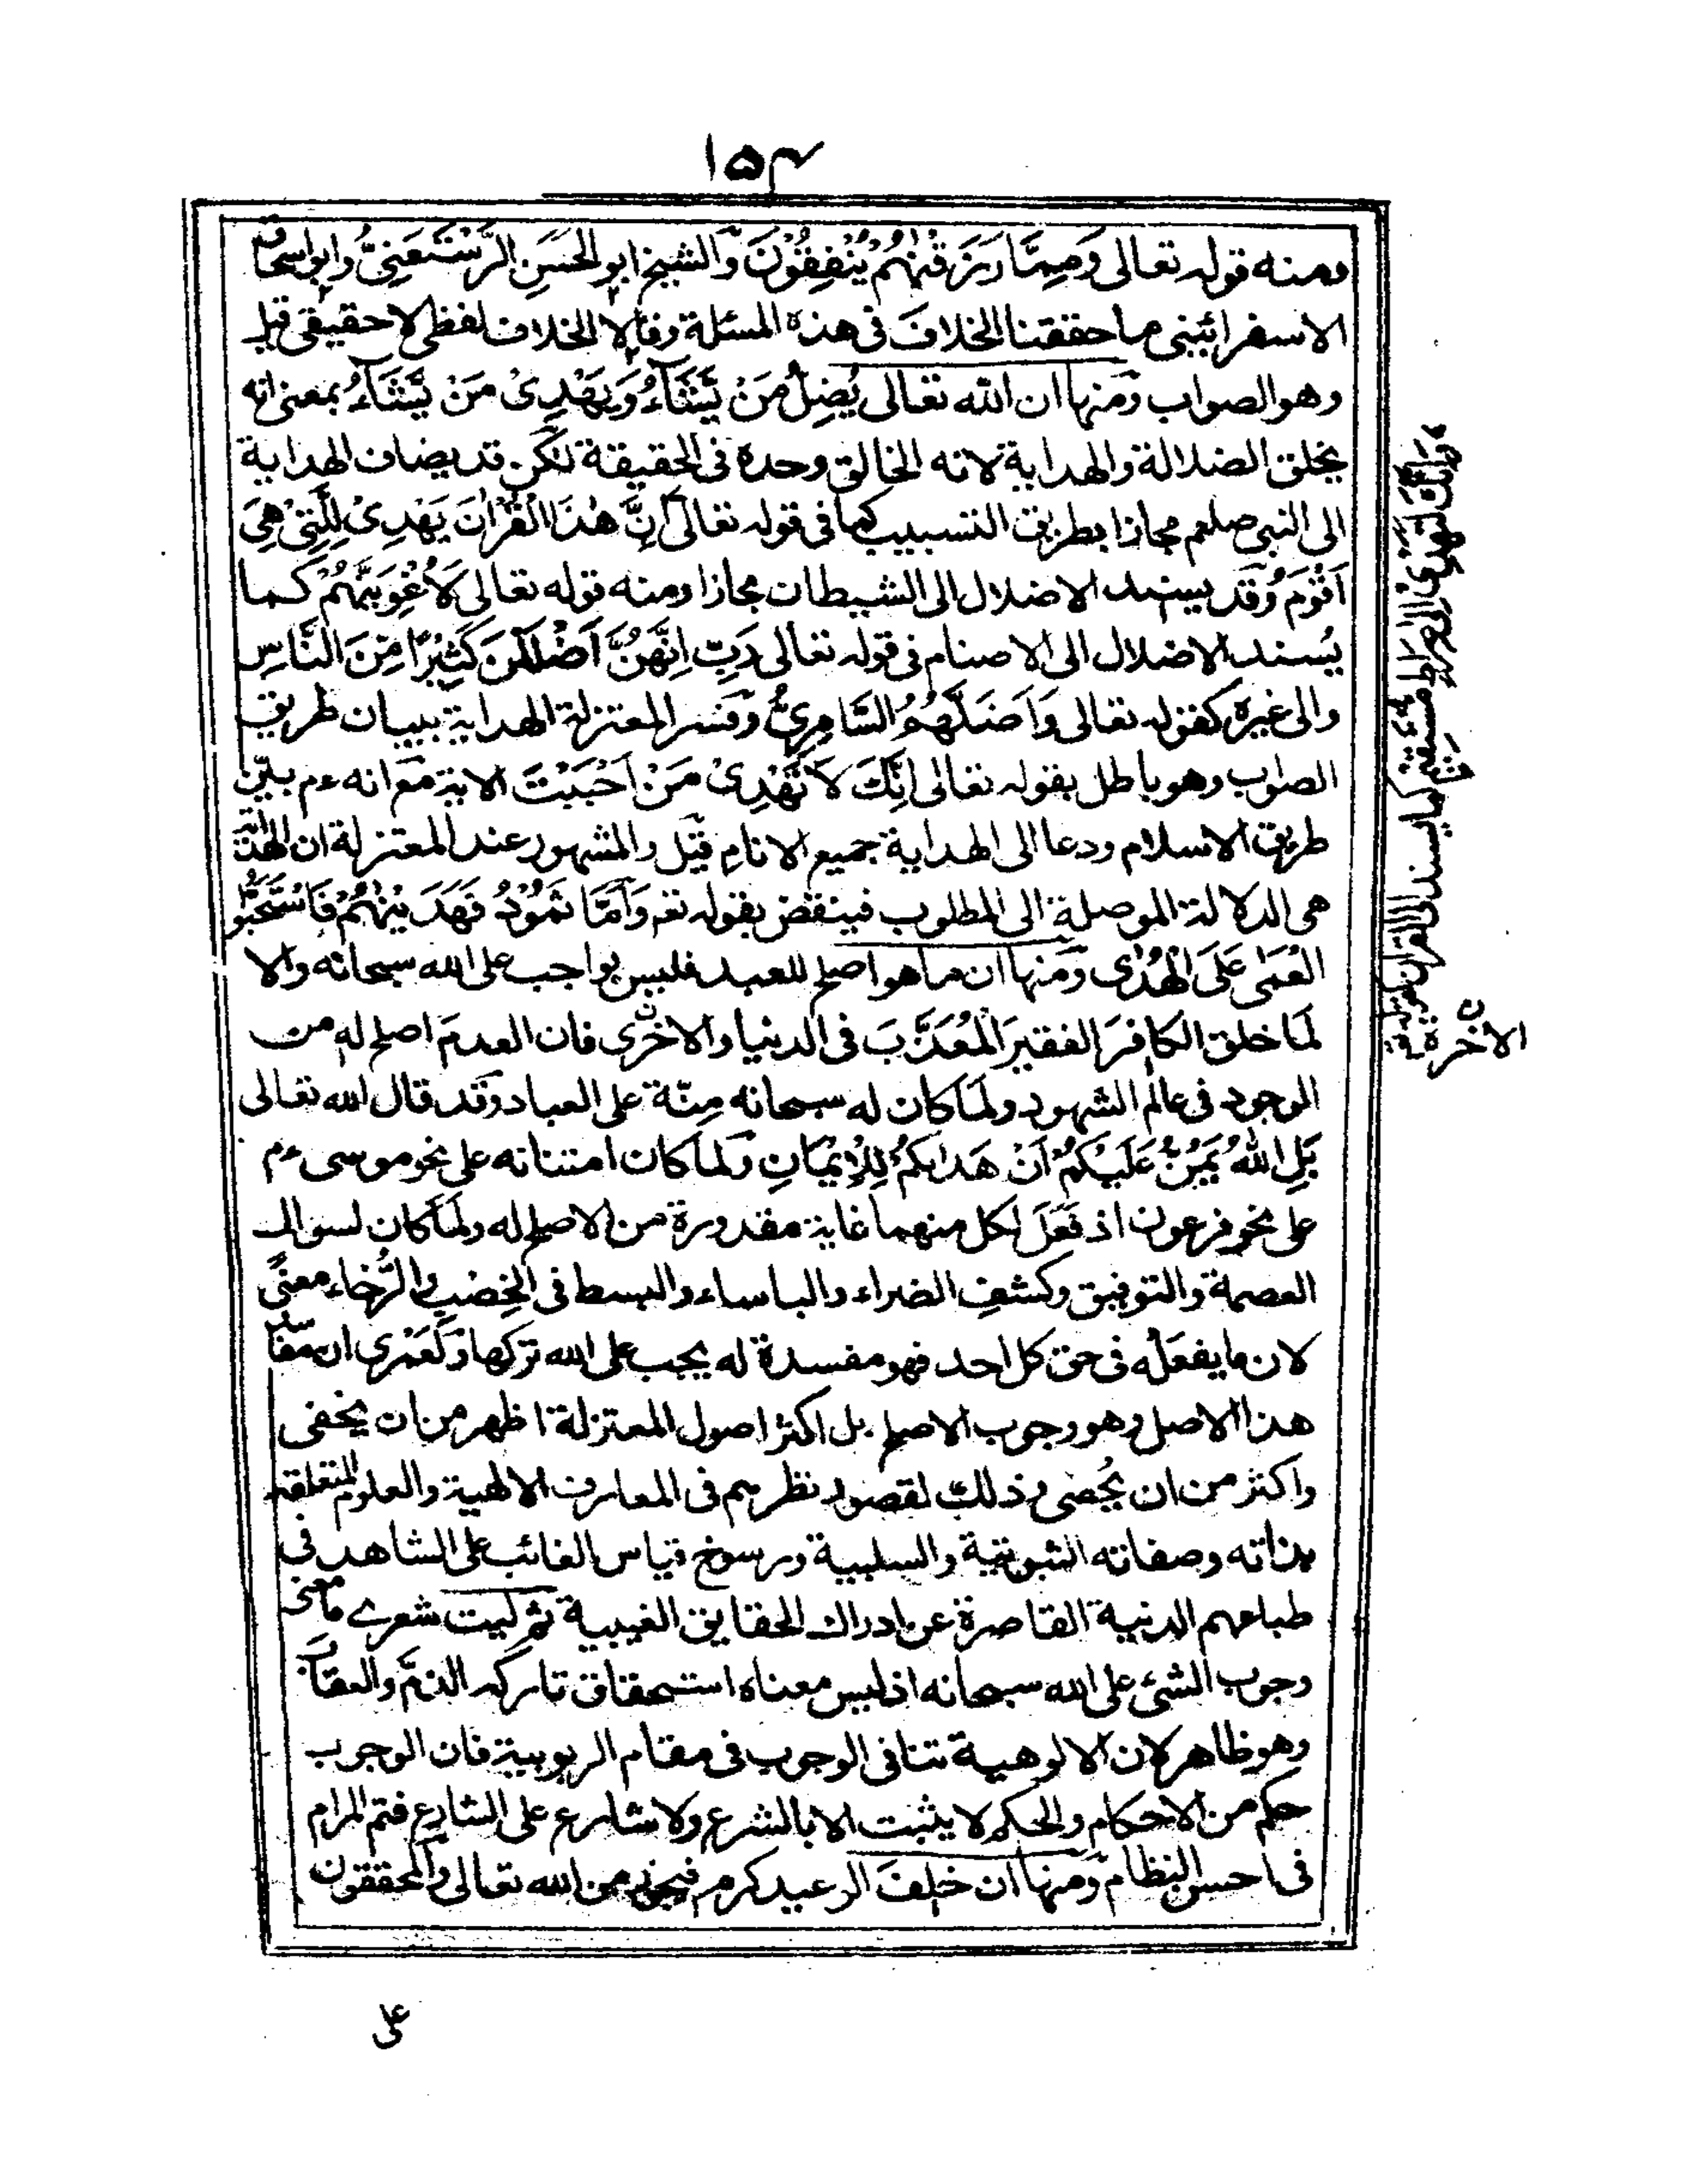 ١٥٣
ومنه قوله تعالى وَمِمَّا رَزَقْنٰهُمْ يُنْفِقُوْنَ والشيخ ابو الحَسَنِ الرُّسْتَغفَنِىُّ وابو اسحاق
الاسفرائينى ما حققنا الخلافَ فى هذه المسئلة وقالا الخلاف لفظى لا حقيقى قيل
وهو الصواب ومنها ان الله تعالى يُضِلُّ مَنْ يَّشَآءُ وَيَهْدِىْ مَنْ يَّشَآءُ بمعنى انه
يخلق الضلالة والهداية لانه الخالق وحده فى الحقيقة لكن قد يضاف الهداية
الى النبى صلعم مجازا بطريق التسبيب كما فى قوله تعالى اِنَّ هٰذَا الْقُرْاٰنَ يَهْدِىْ لِلَّتِىْ هِىَ
اَقْوَمُ وقد يسند الاضلال الى الشيطان مجازا ومنه قوله تعالى لَاُغْوِيَنَّهُمْ كما
يُسند الاضلال الى الاصنام فى قوله تعالى رَبِّ اِنَّهُنَّ اَضْلَلْنَ كَثِيْرًا مِّنَ النَّاسِ
والى غيره كقوله تعالى وَاَضَلَّهُمُ السَّامِرِىُّ وفسر المعتزلة الهداية ببيان طريق
الصواب وهو باطل بقوله تعالى اِنَّكَ لَا تَهْدِىْ مَنْ اَحْبَبْتَ الاية مع انه ءم بيّن
طريق الاسلام ودعا الى الهداية جميع الانام قيل والمشهور عند المعتزلة ان الهداية
هى الدلالة الموصلة الى المطلوب فينقض بقوله تعـ وَاَمَّا ثَمُوْدُ فَهَدَيْنٰهُمْ فَاسْتَحَبُّوا
الْعَمٰى عَلَى الْهُدٰى ومنها ان ما هو اصلح للعبد فليس بواجب على الله سبحانه والا
لَمَا خلق الكافرَ الفقيرَ المُعَذَّبَ فى الدنيا والاخرى فان العدمَ اصلح له من
الوجود فى عالم الشهود ولَمَا كان له سبحانه مِنّة على العباد وقد قال الله تعالى
بَلِ اللهُ يَمُنُّ عَلَيْكُمْ اَنْ هَدٰىكُمْ لِلْاِيْمَانِ ولما كان امتنانه على نحو موسى ءم
على نحو فرعون اذ فَعَلَ لكل منهما غاية مقدورة من الاصلح له ولَمَا كان لسوال
العصمة والتوفيق وكشفِ الضراء والباساء والبسط فى الخِصْبِ والرُّخاء معنًى
لان ما يفعله فى حق كل احد فهو مفسدة له يجب على الله تركها ولَعَمْرى ان مفاسد
هذا الاصل وهو وجوب الاصلح بل اكثر اصول المعتزلة اظهر من ان يخفى
واكثر من ان يُحْصى وذلك لقصور نظرهم فى المعارف الالهية والعلوم المتعلقة
بذاته وصفاته الثبوتية والسلبية ورسوخ قياس الغائب على الشاهد فى
طباعهم الدنية القاصرة عن ادراك الحقايق الغيبية ثم ليت شعرے ما معنى
وجوب الشئ على الله سبحانه اذ ليس معناه استحقاق تاركه الذمّ والعقابَ
وهو ظاهر لان الالوهية تنافى الوجوب فى مقام الربوبية فان الوجوب
حكم من الاحكام والحكم لا يثبت الا بالشرع ولا شارع على الشارع فتم المرام
فى احسن النظام ومنها ان خلفَ الوعيد كرم فيجوز من الله تعالى والمحققون
وَاِنَّكَ لَتَهْدِىْ اِلٰى صِرَاطٍ مُّسْتَقِيْمٍ كما يسند الى القران كقوله
الاخرة
على